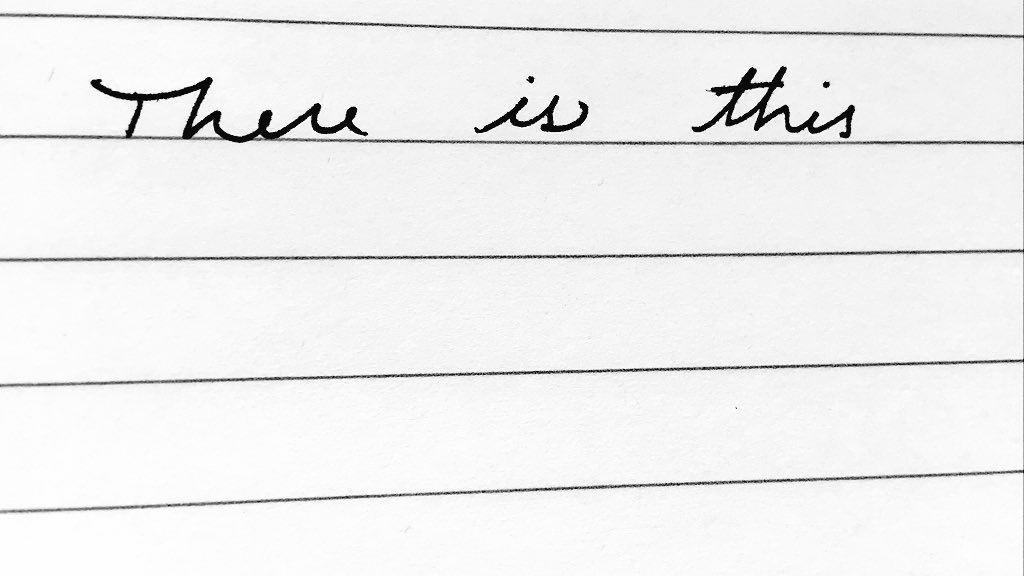 There is this